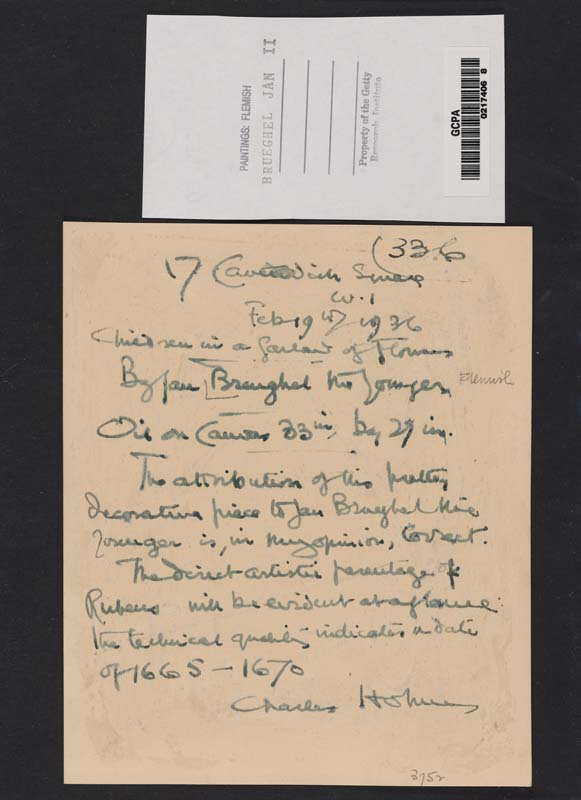 PAINTINGS: FLEMISH
BRUEGHEL JAN II
Property of the Getty
Research Institute
GCPA
0217406 8
(336
17 Cavendish Square
W.1
Feb 19th 1936
Children in a Garland of Flowers
By Jan [Brueghel the Younger.
Flemish.
Oil on Canvas 33 in, by 29 in.
The attribution of this pretty
decorative piece to Jan Brueghel the
Younger is, in my opinion, correct.
The direct artistic parentage of
Rubens will be evident at a glance.
The technical quality indicates a date
of 1665 - 1670
Charles Holmes
3752